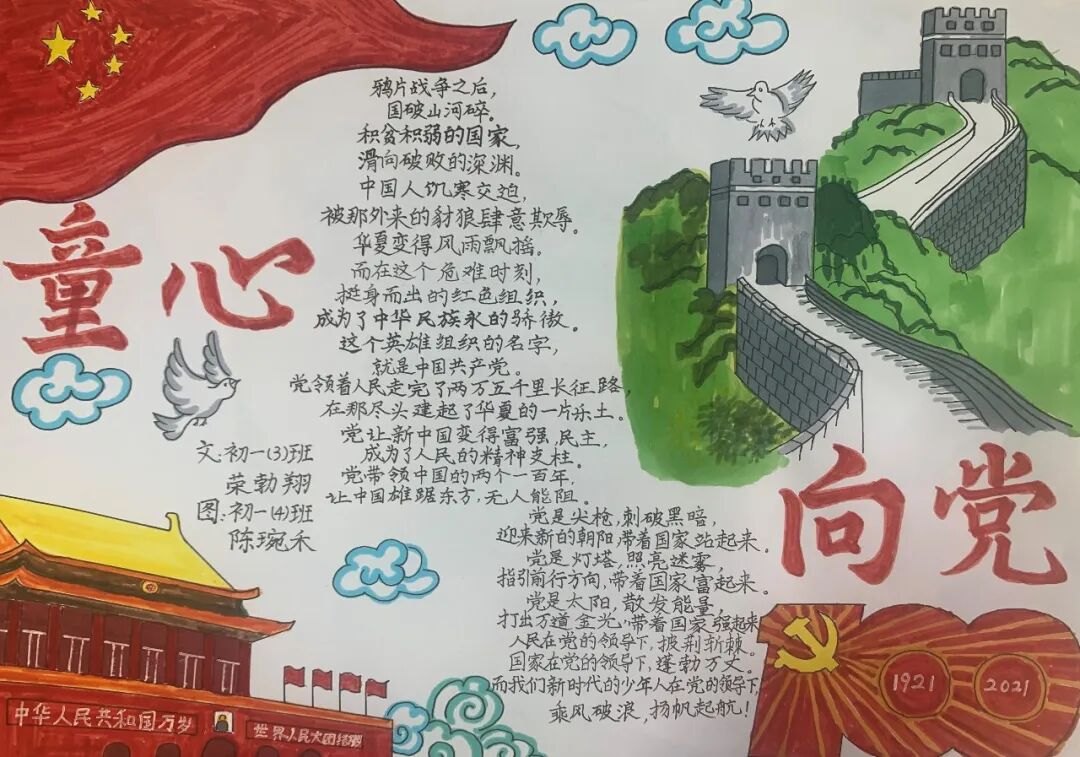 童心
向党
鸦片战争之后,
国破山河碎。
积贫积弱的国家,
滑向破败的深渊。
中国人饥寒交迫,
被那外来的豺狼肆意欺辱。
华夏变得风雨飘摇。
而在这个危难时刻,
挺身而出的红色组织,
成为了中华民族永的骄傲。
这个英雄组织的名字,
就是中国共产党。
党领着人民走完了两万五千里长征路,
在那尽头建起了华夏的一片乐土。
党让新中国变得富强,民主,
成为了人民的精神支柱。
党带领中国的两个一百年,
让中国雄踞东方,无人能阻。
党是尖枪,刺破黑暗,
迎来新的朝阳,带着国家站起来。
党是灯塔,照亮迷雾,
指引前行方向,带着国家富起来。
党是太阳,散发能量,
打出万道金光,带着国家强起来
人民在党的领导下,披荆斩棘。
国家在党的领导下,蓬勃万丈。
而我们新时代的少年人在党的领导下,
乘风破浪,扬帆起航!
文:初一(3)班
荣勃翔
图:初一(4)班
陈琬禾
中华人民共和国万岁
世界人民大团结
1921
2021